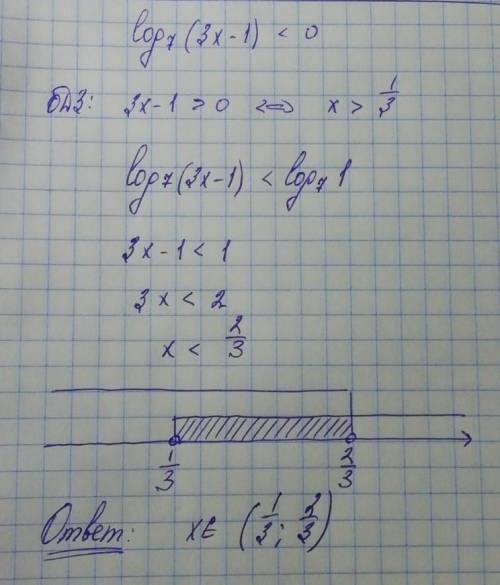 log₇(3x-1) < 0
ОДЗ: 3x-1 > 0 <=> x > 1/3
log₇(3x-1) < log₇ 1
3x-1 < 1
3x < 2
x < 2/3
1/3 2/3
Ответ: x∈ (1/3; 2/3)